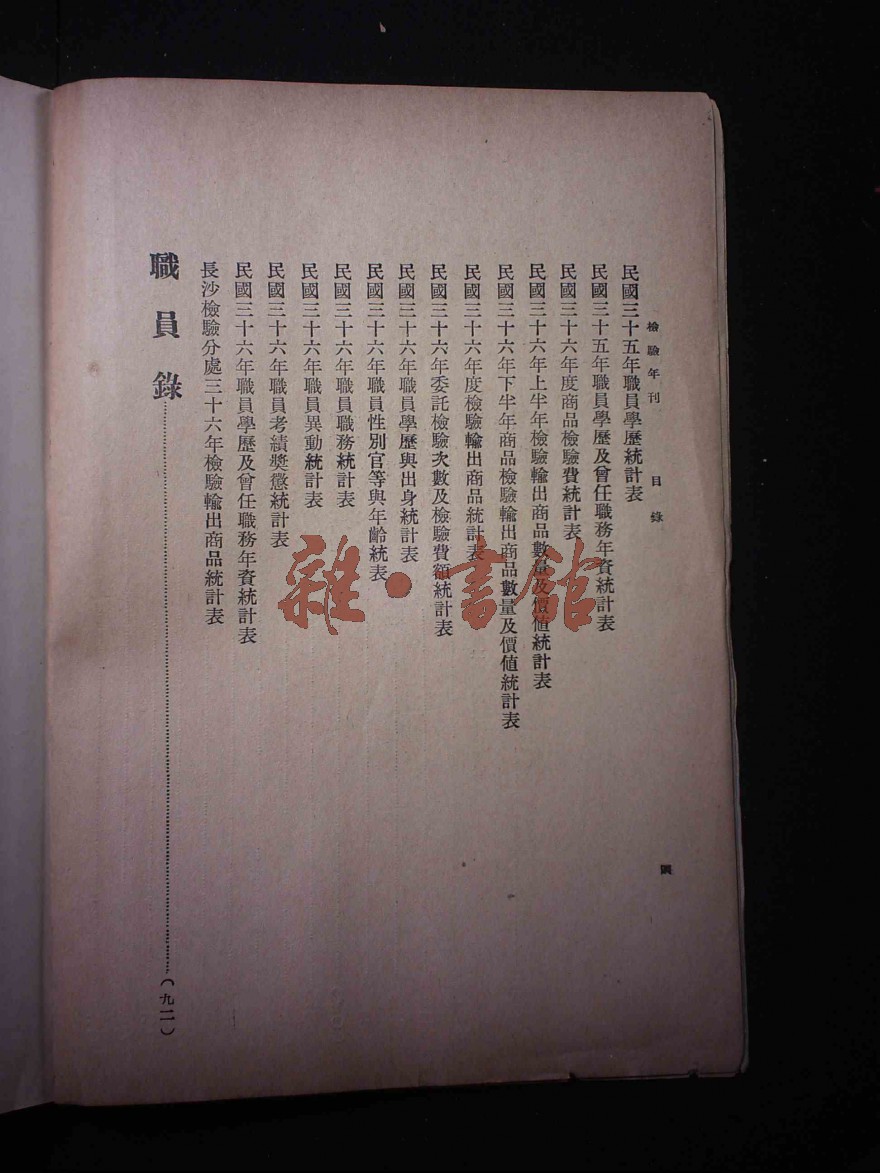 檢驗年刊 目錄 四
民國三十五年職員學歷統計表
民國三十五年職員學歷及曾任職務年資統計表
民國三十六年度商品檢驗費統計表
民國三十六年上半年檢驗輸出商品數量及價值統計表
民國三十六年下半年商品檢驗輸出商品數量及價值統計表
民國三十六年度檢驗輸出商品統計表
民國三十六年委託檢驗次數及檢驗費額統計表
民國三十六年職員學歷與出身統計表
民國三十六年職員性別官等與年齡統表
民國三十六年職員職務統計表
民國三十六年職員異動統計表
民國三十六年職員考績獎懲統計表
民國三十六年職員學歷及曾任職務年資統計表
長沙檢驗分處三十六年檢驗輸出商品統計表
職員錄……(九二)
雜·書館